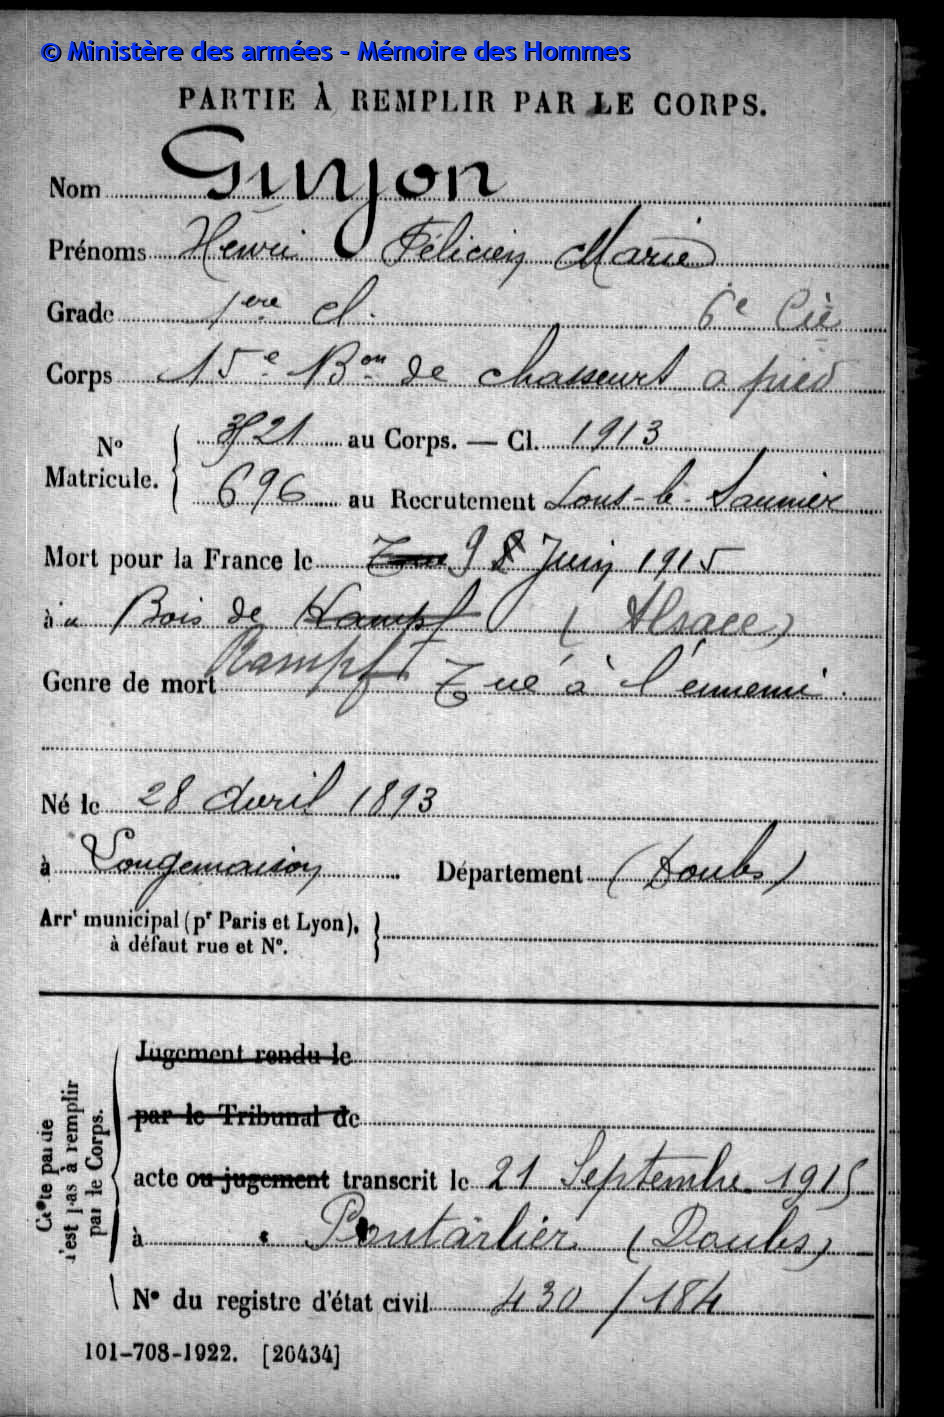 © Ministère des armées - Mémoire des Hommes
PARTIE À REMPLIR PAR LE CORPS.
Nom Guyon
Prénoms Henri Félicien Marie
Grade 1ère cl. 6e Cie
Corps 15e Bon de chasseurs a pied
No Matricule. { 3521 au Corps. — Cl. 1913
696 au Recrutement Lons-le-Saunier
Mort pour la France le 9 Juin 1915
à Bois de Kampf (Alsace)
Rampf
Genre de mort Tué à l'ennemi.
Né le 28 Avril 1893
à Longemaison Département (Doubs)
Arrt municipal (pr Paris et Lyon),
à défaut rue et No.
Cette partie n'est pas à remplir par le Corps.
Jugement rendu le
par le Tribunal de
acte ou jugement transcrit le 21 Septembre 1915
à Pontarlier (Doubs)
No du registre d'état civil 430/184
101-708-1922. [26434]